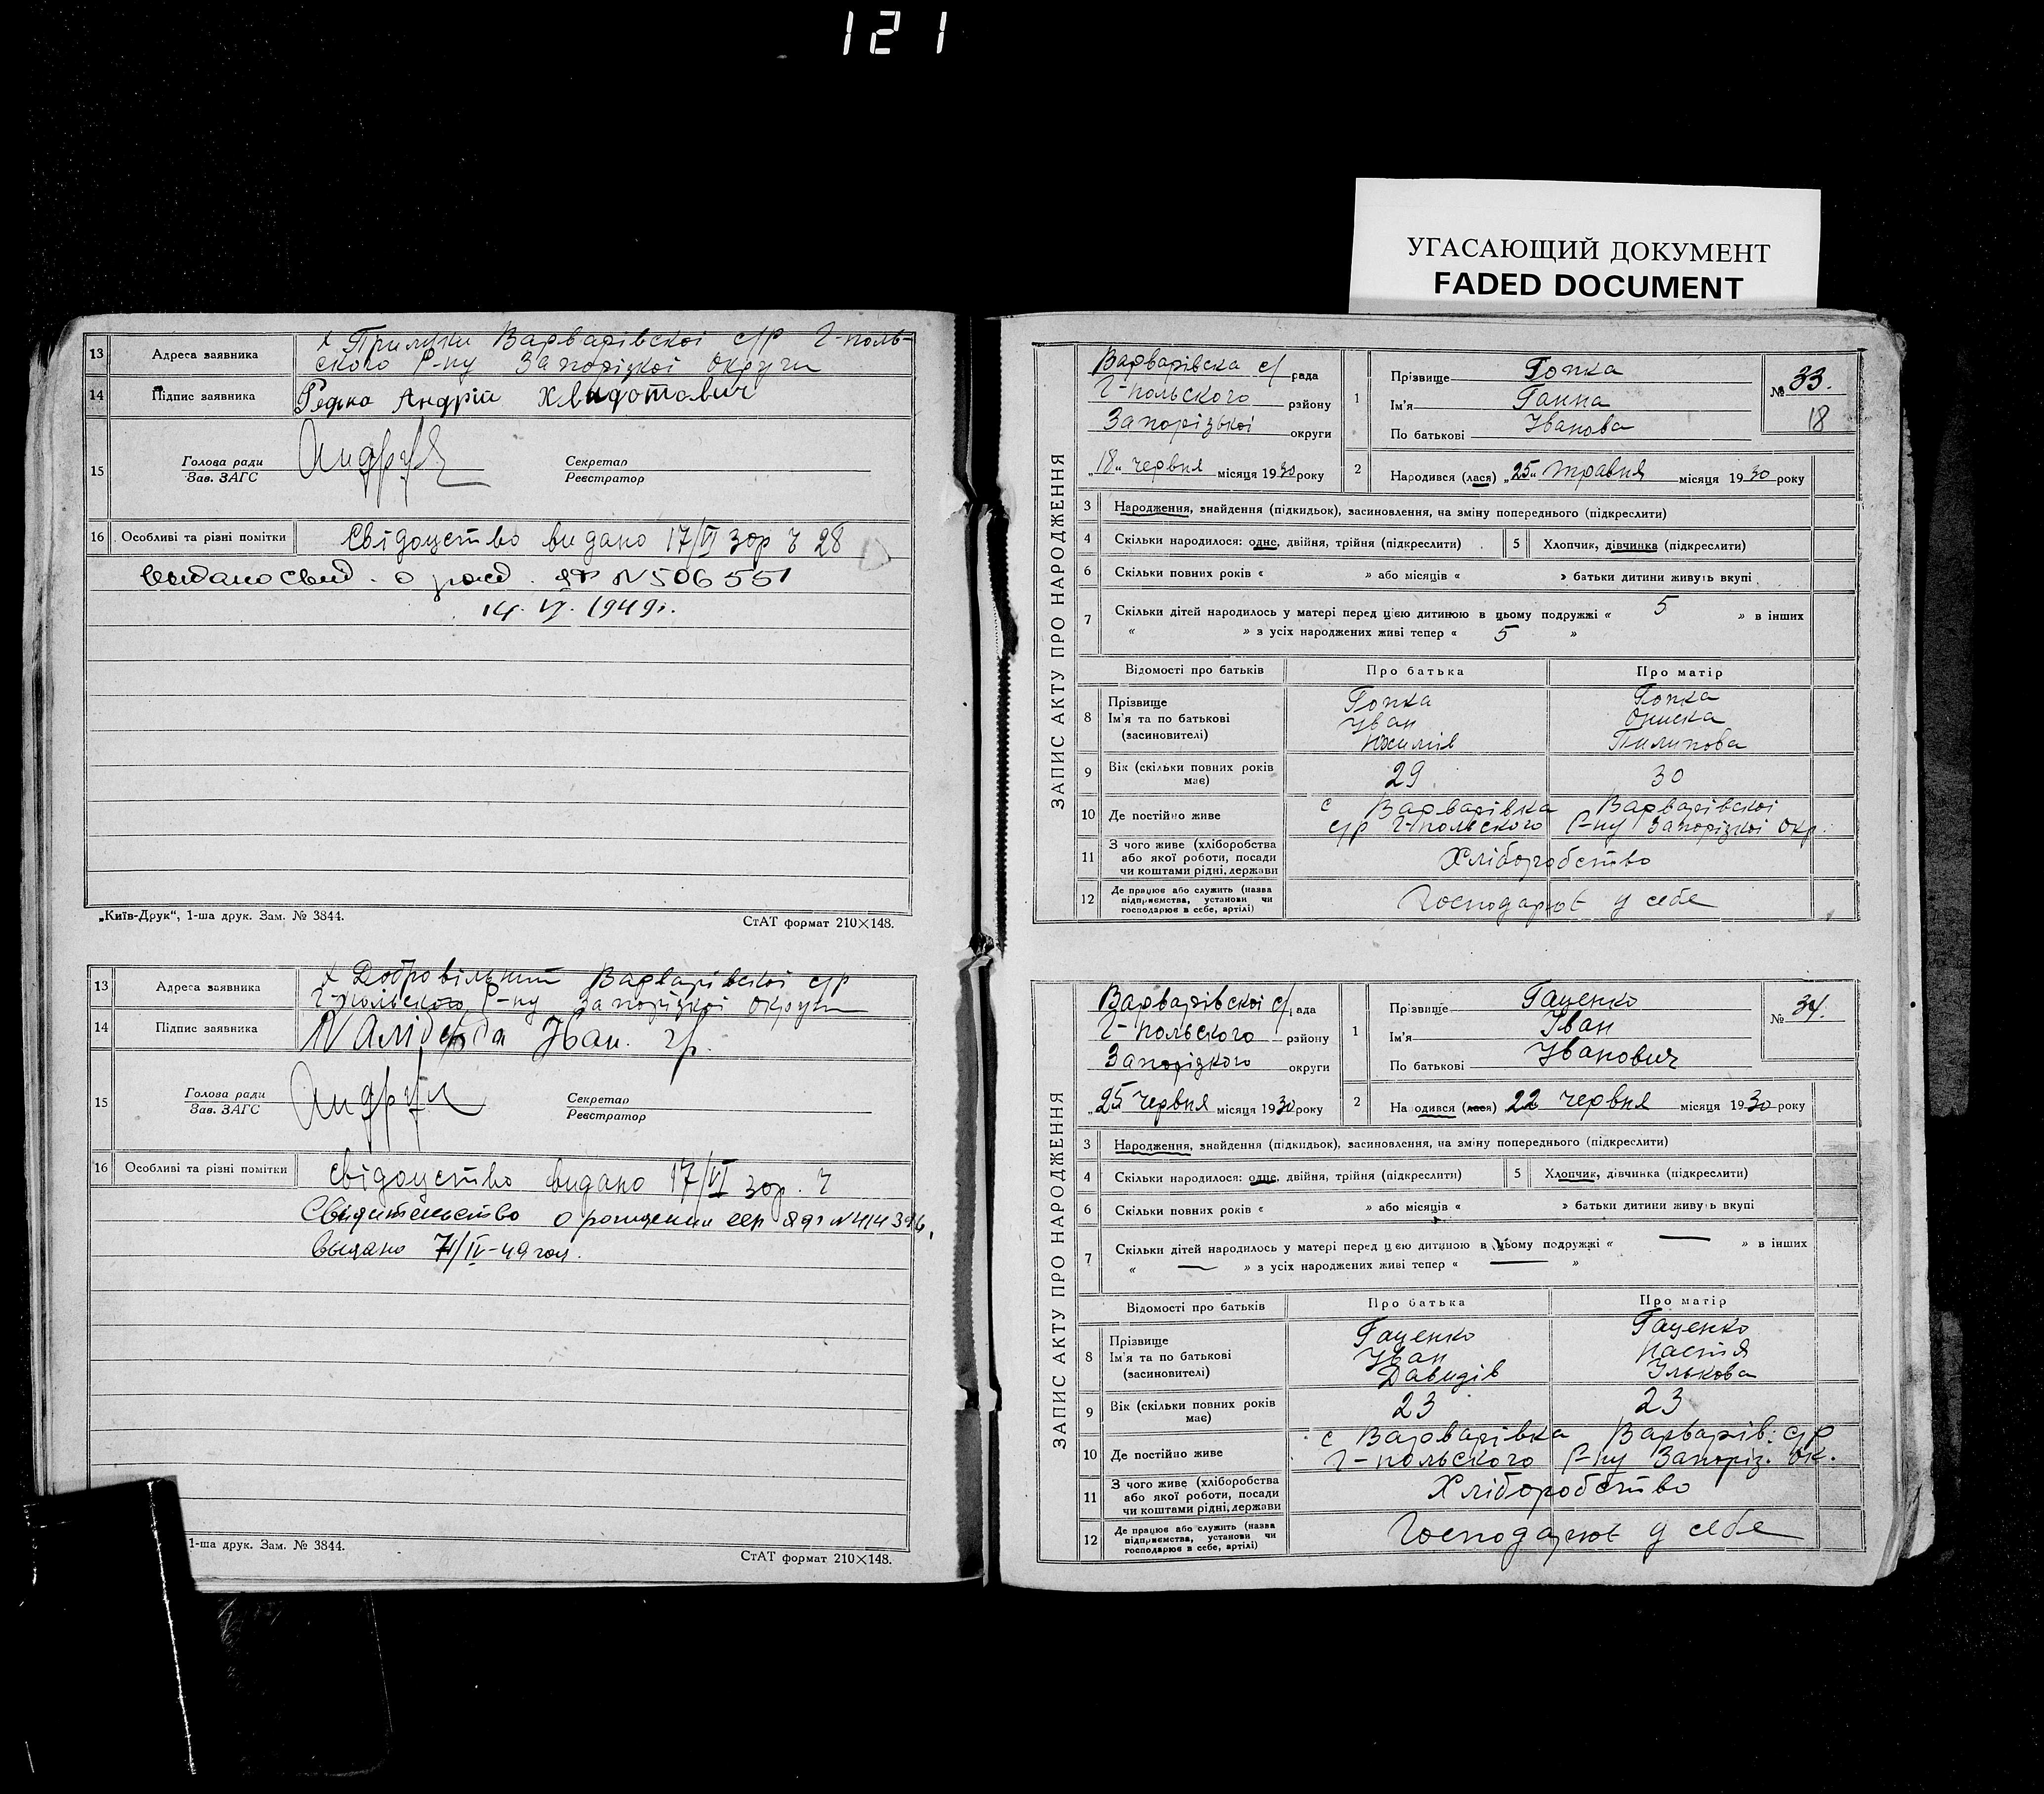 121
УГАСАЮЩИЙ ДОКУМЕНТ
FADED DOCUMENT
13 Адреса заявника х Прилуки Варварівскоі с/р Г-поль-
ського Р-ну Запорізкоі округи
14 Підпис заявника Редка Андрій Хвидотович
15 Голова ради
Зав. ЗАГС
Секретар
Реєстратор
16 Особливі та різні помітки Свідоцство видано 17/VI 30р Ч 28
выдано свид. о рожд. ЯР N506551
14. VI. 1949г.
„Київ-Друк“, 1-ша друк. Зам. № 3844. СтАТ формат 210×148.
13 Адреса заявника х Добровільний Варварівскоі с/р
Г-польского Р-ну Запорізкоі округи
14 Підпис заявника Іван. Гр.
15 Голова ради
Зав. ЗАГС
Секретар
Реєстратор
16 Особливі та різні помітки Свідоцство видано 17/VI 30р. Ч
Свидительство о рождении сер N414396,
выдано /IV-49 год.
1-ша друк. Зам. № 3844. СтАТ формат 210×148.
ЗАПИС АКТУ ПРО НАРОДЖЕННЯ
Варварівска с/ рада
Г-польского району
Запорізькоі округи
„18“ червня місяця 1930 року
1 Прізвище Гопка
Ім'я Ганна
По батькові Іванова
№ 33.
18
2 Народився (лася) „25“ травня місяця 1930 року
3 Народження, знайдення (підкидьок), засиновлення, на зміну попереднього (підкреслити)
4 Скільки народилося: одне, двійня, трійня (підкреслити) 5 Хлопчик, дівчинка (підкреслити)
6 Скільки повних років « » або місяців « » батьки дитини живуть вкупі
7 Скільки дітей народилось у матері перед цією дитиною в цьому подружжі « 5 » в інших
« » з усіх народжених живі тепер « 5 »
Відомості про батьків Про батька Про матір
8 Прізвище Гопка Гопка
Ім'я та по батькові Іван Ониска
(засиновителі) Пилипова
9 Вік (скільки повних років має) 29 30
10 Де постійно живе с Варварівка Варварівскоі
с/р Г-польского Р-ну Запорізкоі Окр.
11 З чого живе (хліборобства
або якої роботи, посади
чи коштами рідні, держави Хліборобство
12 Де працює або служить (назва
підприємства, установи чи
господарює в себе, артілі) Господарює у себе
ЗАПИС АКТУ ПРО НАРОДЖЕННЯ
Варварівскоі с/ рада
Г-польского району
Запорізкого округи
„25 червня місяця 1930 року
1 Прізвище Гаценко
Ім'я Іван
По батькові Іванович
№ 34.
2 Народився (лася) 22 червня місяця 1930 року
3 Народження, знайдення (підкидьок), засиновлення, на зміну попереднього (підкреслити)
4 Скільки народилося: одне, двійня, трійня (підкреслити) 5 Хлопчик, дівчинка (підкреслити)
6 Скільки повних років « » або місяців « » батьки дитини живуть вкупі
7 Скільки дітей народилось у матері перед цією дитиною в цьому подружжі « — » в інших
« — » з усіх народжених живі тепер « — »
Відомості про батьків Про батька Про матір
8 Прізвище Гаценко Гаценко
Ім'я та по батькові Іван Настя
(засиновителі) Давидів Ількова
9 Вік (скільки повних років має) 23 23
10 Де постійно живе с Варварівка Варварів. с/р
Г-польского Р-ну Запоріз. Ок.
11 З чого живе (хліборобства
або якої роботи, посади
чи коштами рідні, держави Хліборобство
12 Де працює або служить (назва
підприємства, установи чи
господарює в себе, артілі) Господарює у себе